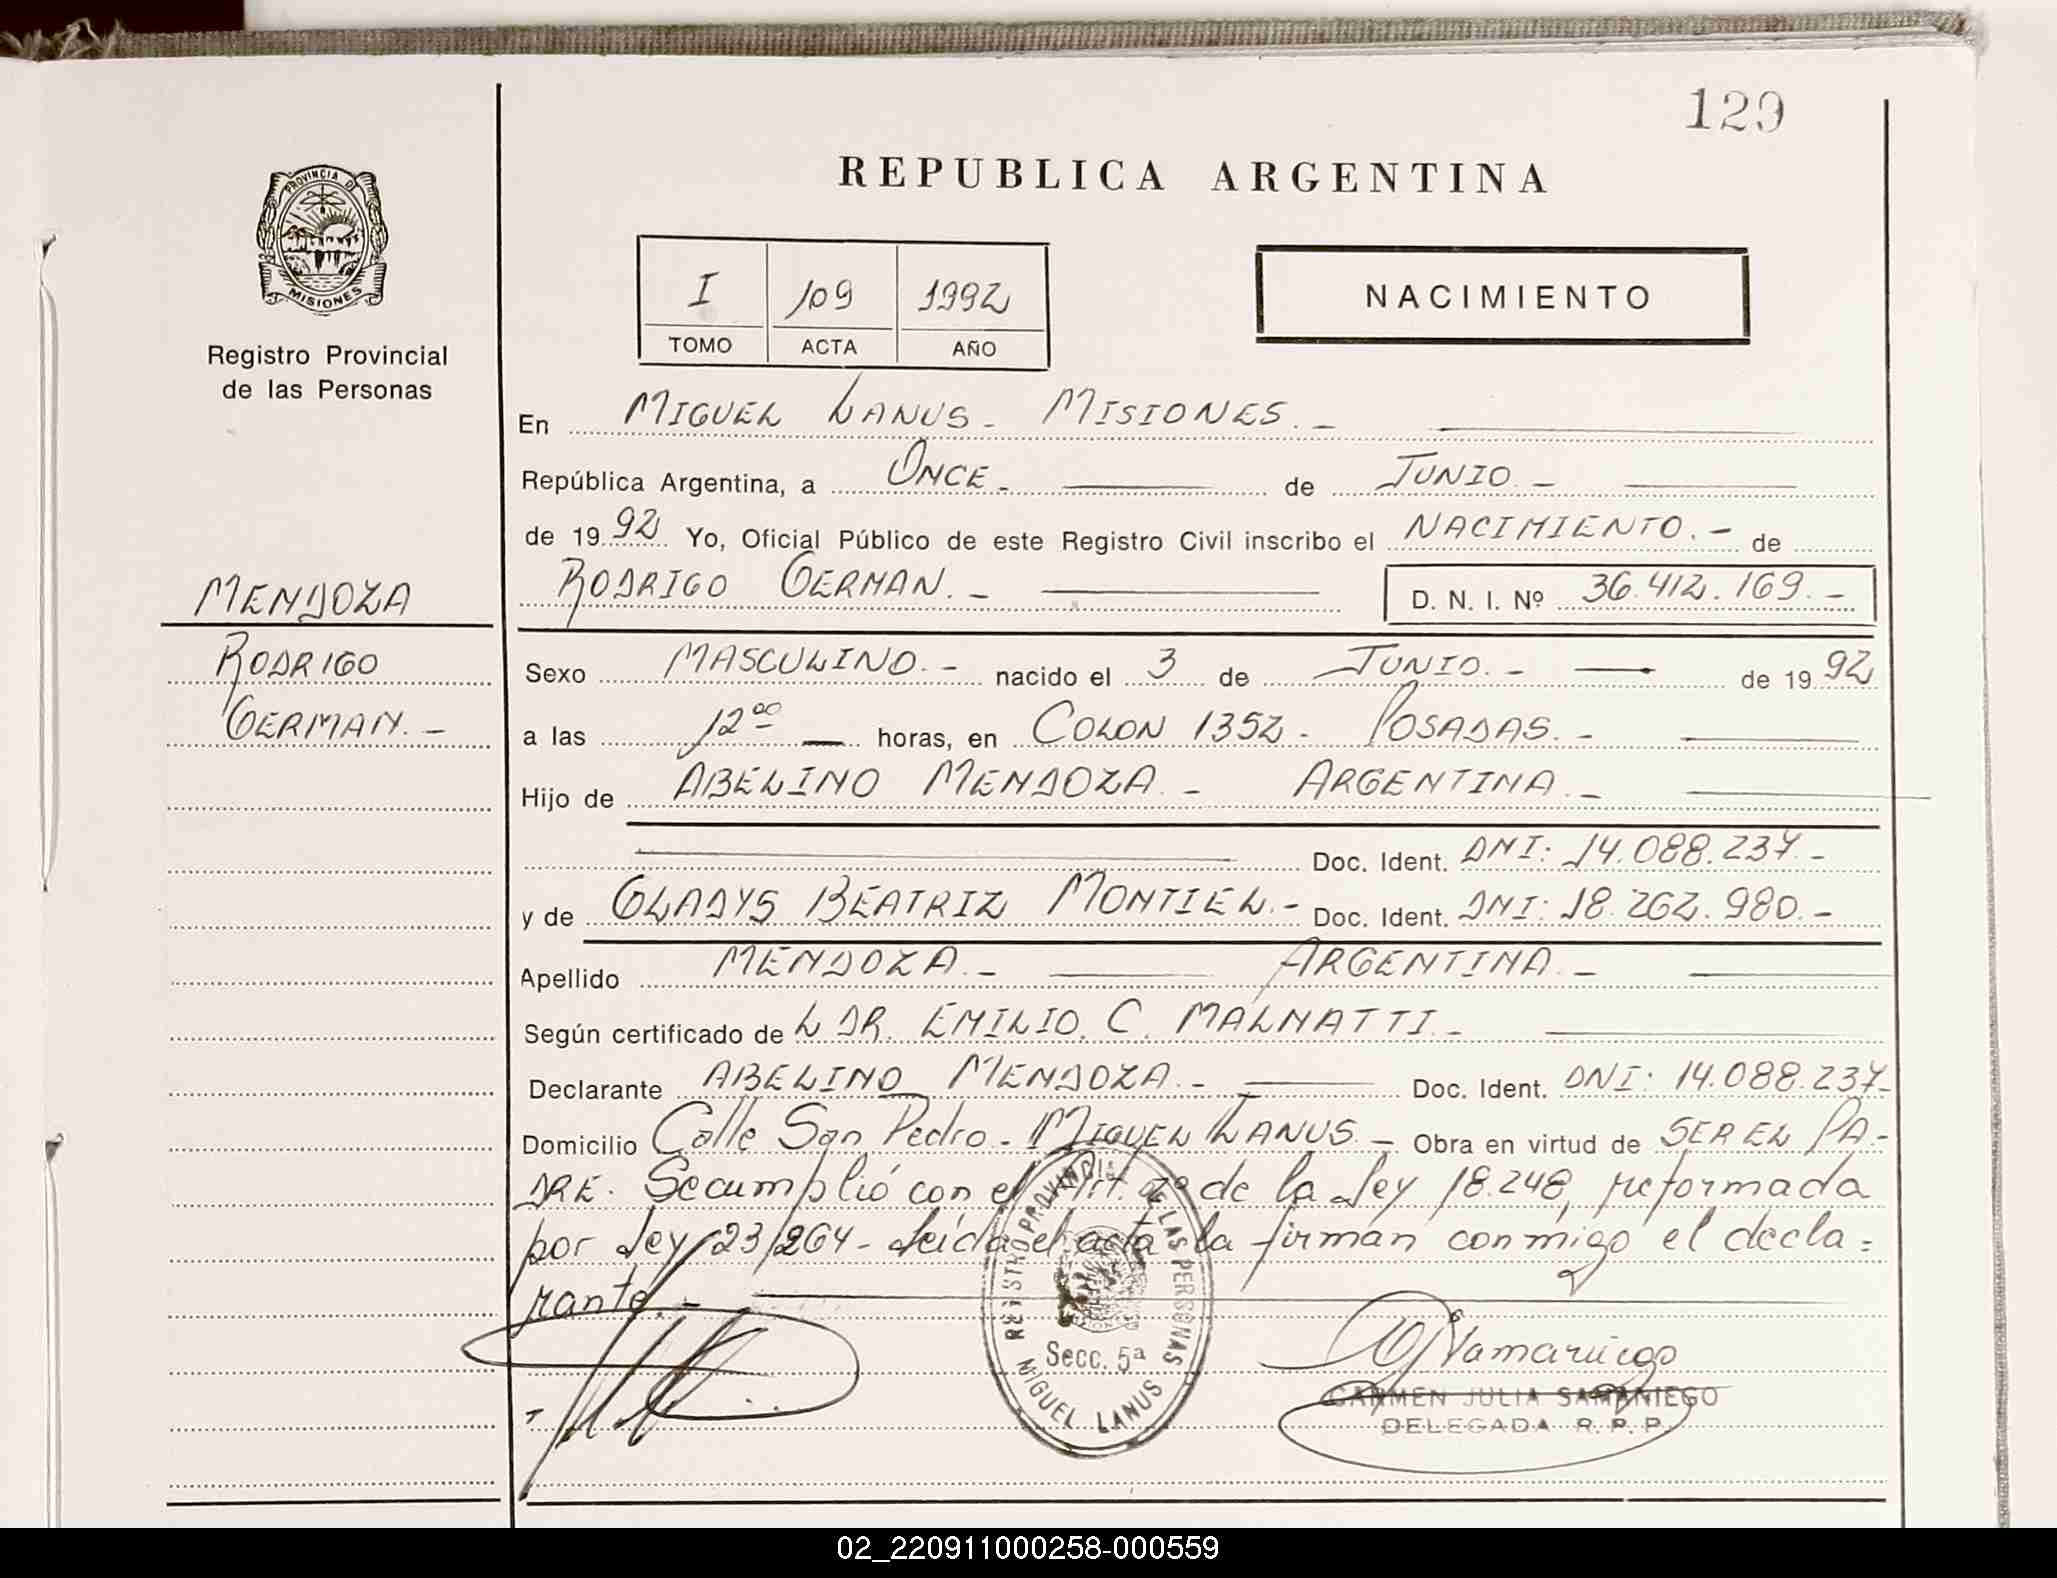 129
REPUBLICA ARGENTINA
PROVINCIA DE
MISIONES
Registro Provincial
de las Personas
I 109 1992
TOMO ACTA AÑO
NACIMIENTO
En MIGUEL LANUS - MISIONES. -
República Argentina, a ONCE - de JUNIO -
de 1992 Yo, Oficial Público de este Registro Civil inscribo el NACIMIENTO. - de
RODRIGO GERMAN. - D. N. I. Nº 36.412.169. -
MENDOZA
RODRIGO
GERMAN. -
Sexo MASCULINO. - nacido el 3 de JUNIO. - de 1992
a las 12⁰⁰ horas, en COLON 1352 - POSADAS. -
Hijo de ABELINO MENDOZA - ARGENTINA. -
Doc. Ident. DNI: 14.088.237 -
y de GLADYS BEATRIZ MONTIEL. - Doc. Ident. DNI: 18.262.980. -
Apellido MENDOZA. - ARGENTINA. -
Según certificado de L DR. EMILIO. C. MALMATTI. -
Declarante ABELINO MENDOZA. - Doc. Ident. DNI: 14.088.237-
Domicilio Calle San Pedro - MIGUEL LANUS. - Obra en virtud de SER EL PA-
DRE. Se cumplió con el Art. 2º de la Ley 18.248, reformada
por Ley 23/264 - Leída el acta la firman conmigo el decla=
rante. -
REGISTRO PROVINCIAL DE LAS PERSONAS
Secc. 5ª
MIGUEL LANUS
CARMEN JULIA SAMANIEGO
DELEGADA R. P. P.
02_220911000258-000559